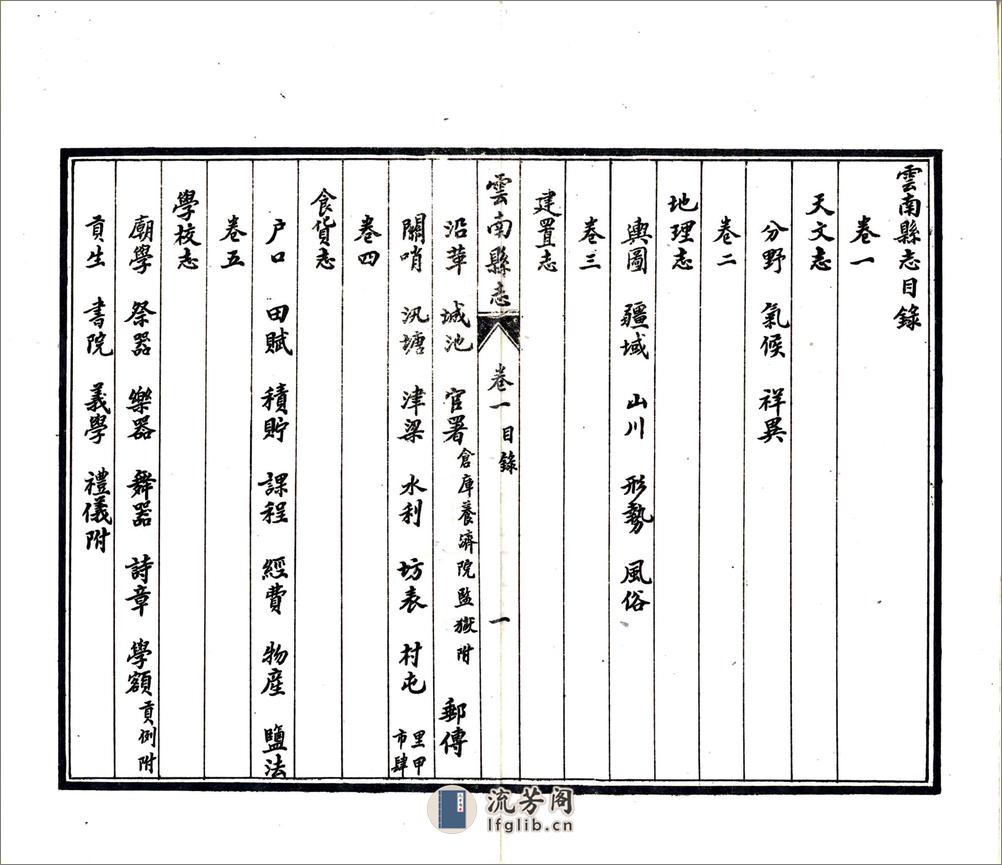 雲南縣志目錄
卷一
天文志
分野 氣候 祥異
卷二
地理志
輿圖 疆域 山川 形勢 風俗
卷三
建置志
雲南縣志 卷一 目錄 一
沿革 城池 官署 倉庫養濟院監獄附 郵傳
關哨 汛塘 津梁 水利 坊表 村屯 里甲市肆
卷四
食貨志
户口 田賦 積貯 課程 經費 物産 鹽法
卷五
學校志
廟學 祭器 樂器 舞器 詩章 學額 貢例附
貢生 書院 義學 禮儀附
流芳阁
lfglib.cn